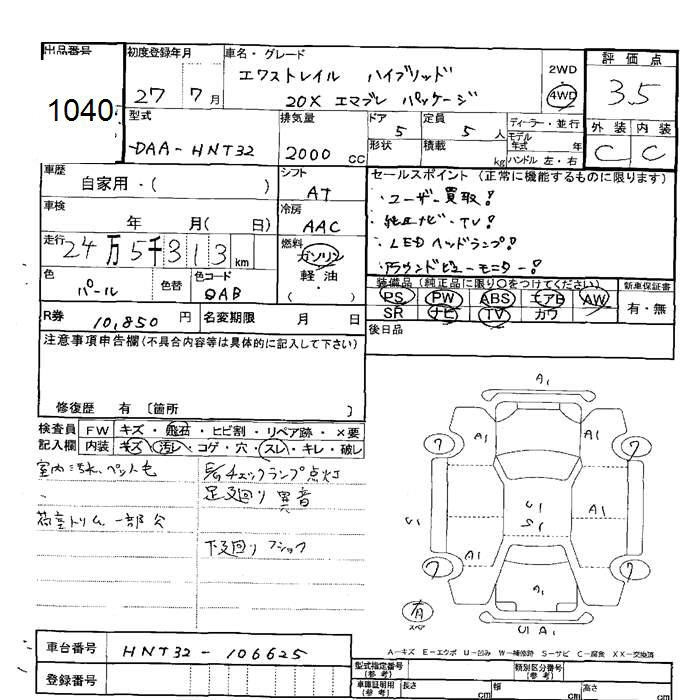 出品番号
1040
初度登録年月
27 7月
車名・グレード
エクストレイル ハイブリッド
20X エマブレ パッケージ
2WD
・
4WD
評価点
3.5
外装 内装
C C
型式
DAA-HNT32
排気量
2000 CC
ドア
5
定員
5 人
形状
積載
kg
ディーラー・並行
モデル年式 年
ハンドル 左・右
車歴
自家用・( )
シフト
AT
車検
年 月( 日)
冷房
AAC
走行
24万5千313km
燃料
ガソリン
軽・油
・
( )
色
パール
色替
色コード
QAB
R券
10,850 円
名変期限 月 日
セールスポイント (正常に機能するものに限ります)
・ユーザー買取!
・純正ナビ・TV!
・LEDヘッドランプ!
・アラウンドビューモニター!
装備品(純正品に限り○をつけてください)
PS PW ABS エアB AW
SR ナビ TV カワ
新車保証書
有・無
後日品
注意事項申告欄(不具合内容等は具体的に記入して下さい)
修復歴 有 〔箇所 〕
検査員
記入欄
FW キズ・飛石・ヒビ割・リペア跡・×要
内装 キズ・汚レ・コゲ・穴・スレ・キレ・破レ
室内汚れ、ペット毛
荷室トリム一部欠
E/Gチェックランプ点灯
足廻り異音
下廻り フショク
A1
A1
A1
7
7
U1
S1
U1
A1
A1
A1
A1
7
7
有
スペア
U1 A1
A-キズ E-エクボ U-凹み W-補修跡 S-サビ C-腐食 XX-交換済
車台番号
HNT32-106625
登録番号
型式指定番号
(参考)
類別区分番号
(参考)
車庫証明用
(参考)
長さ cm
幅 cm
高さ cm